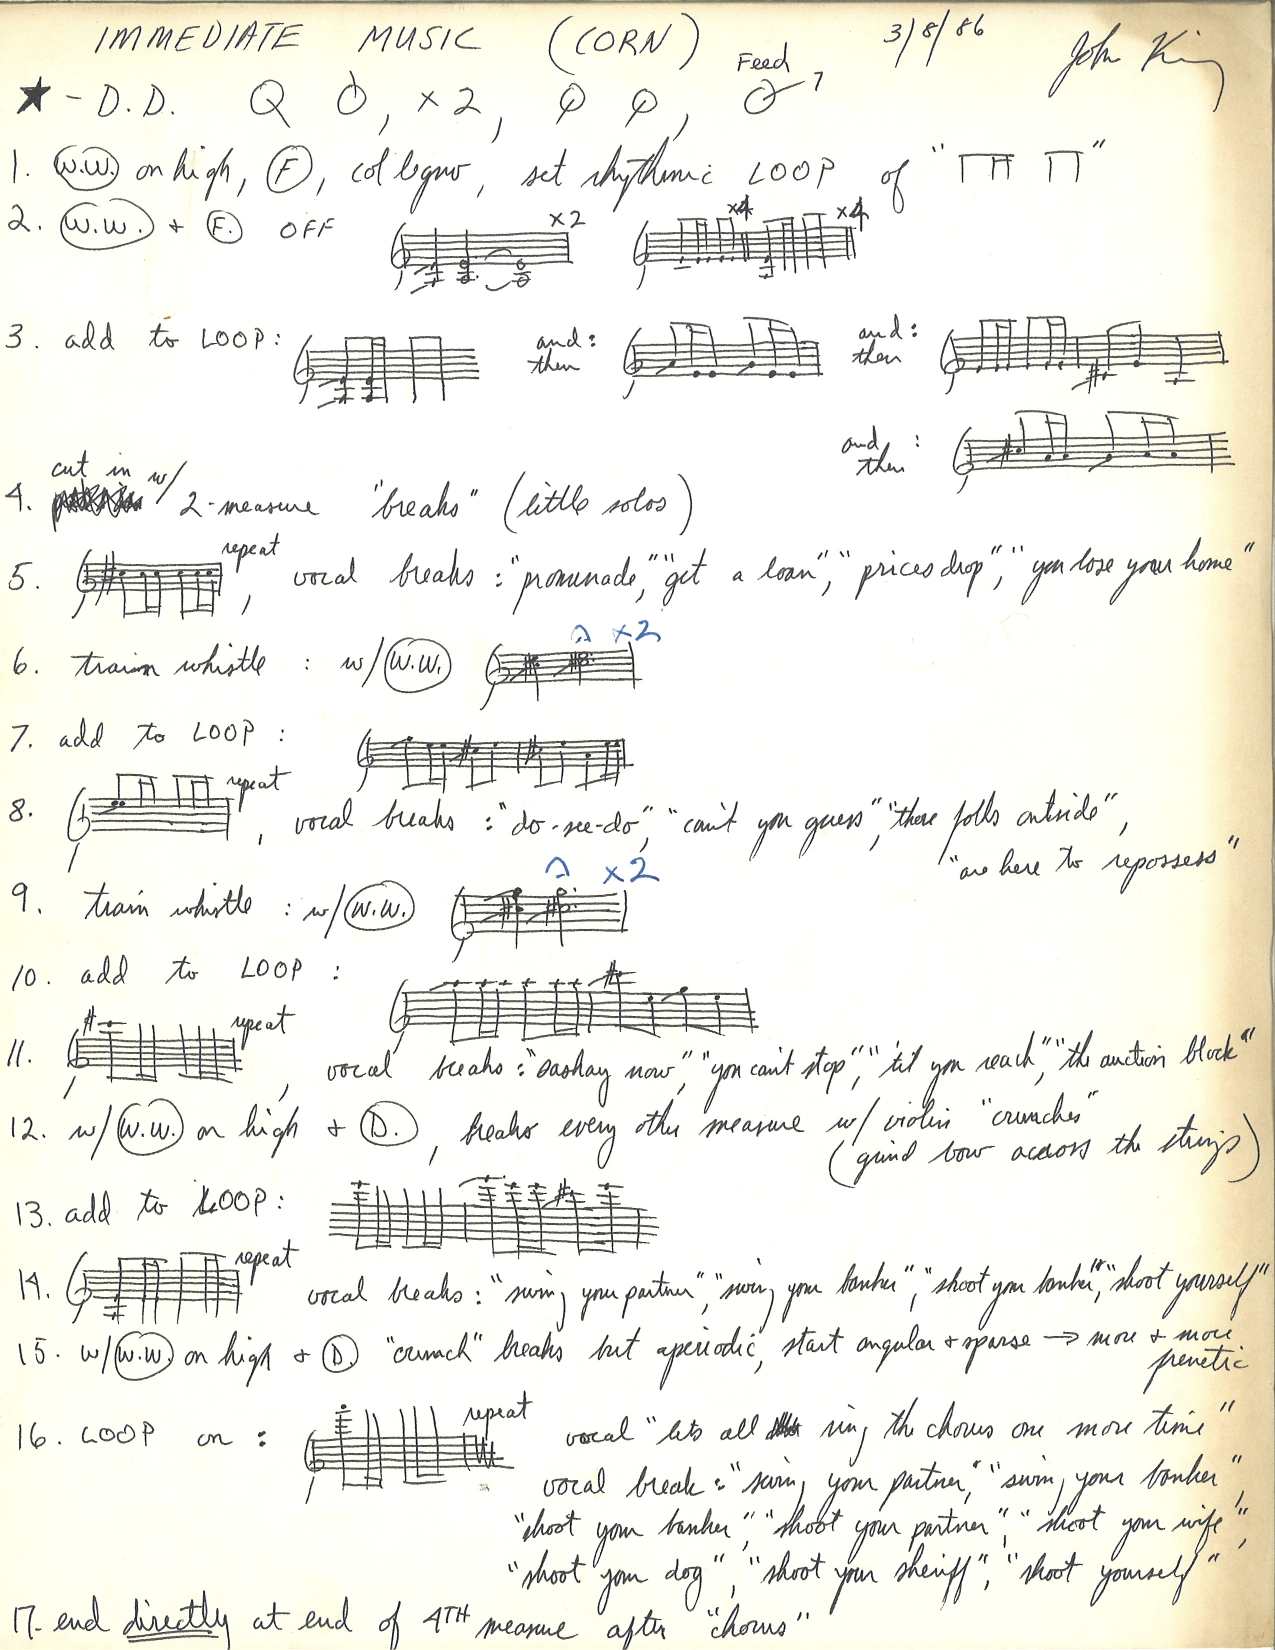 IMMEDIATE MUSIC (CORN) 3/8/86 John King
Feed
★ - D.D. , ×2, , 7
1. W.W. on high, F, col legno, set rhythmic LOOP of " "
2. W.W. + F. OFF ×2 ×4 ×4
3. add to LOOP: and: then and: then
and then :
cut in w/
4. 2-measure "breaks" (little solos)
5. repeat, vocal breaks: "promunade," "get a loan", "prices drop", "you lose your home"
6. train whistle : w/ W.W. ×2
7. add to LOOP :
8. repeat, vocal breaks : "do-see-do", "can't you guess", "those folks outside",
"are here to repossess"
9. train whistle : w/ W.W. ×2
10. add to LOOP :
11. repeat, vocal breaks: "sashay now", "you can't stop", "'til you reach", "the auction block"
12. w/ W.W. on high + D., breaks every other measure w/ violin "crunches"
(grind bow across the strings)
13. add to LOOP:
14. repeat vocal breaks: "swing your partner", "swing your banker", "shoot your banker", "shoot yourself"
15. w/ W.W. on high + D. "crunch" breaks but aperiodic, start angular + sparse → more + more
frenetic
16. LOOP on : repeat vocal "lets all sing the chorus one more time"
vocal break: "swing your partner," "swing your banker",
"shoot your banker", "shoot your partner", "shoot your wife",
"shoot your dog", "shoot your sheriff", "shoot yourself"
17. end directly at end of 4TH measure after "chorus"